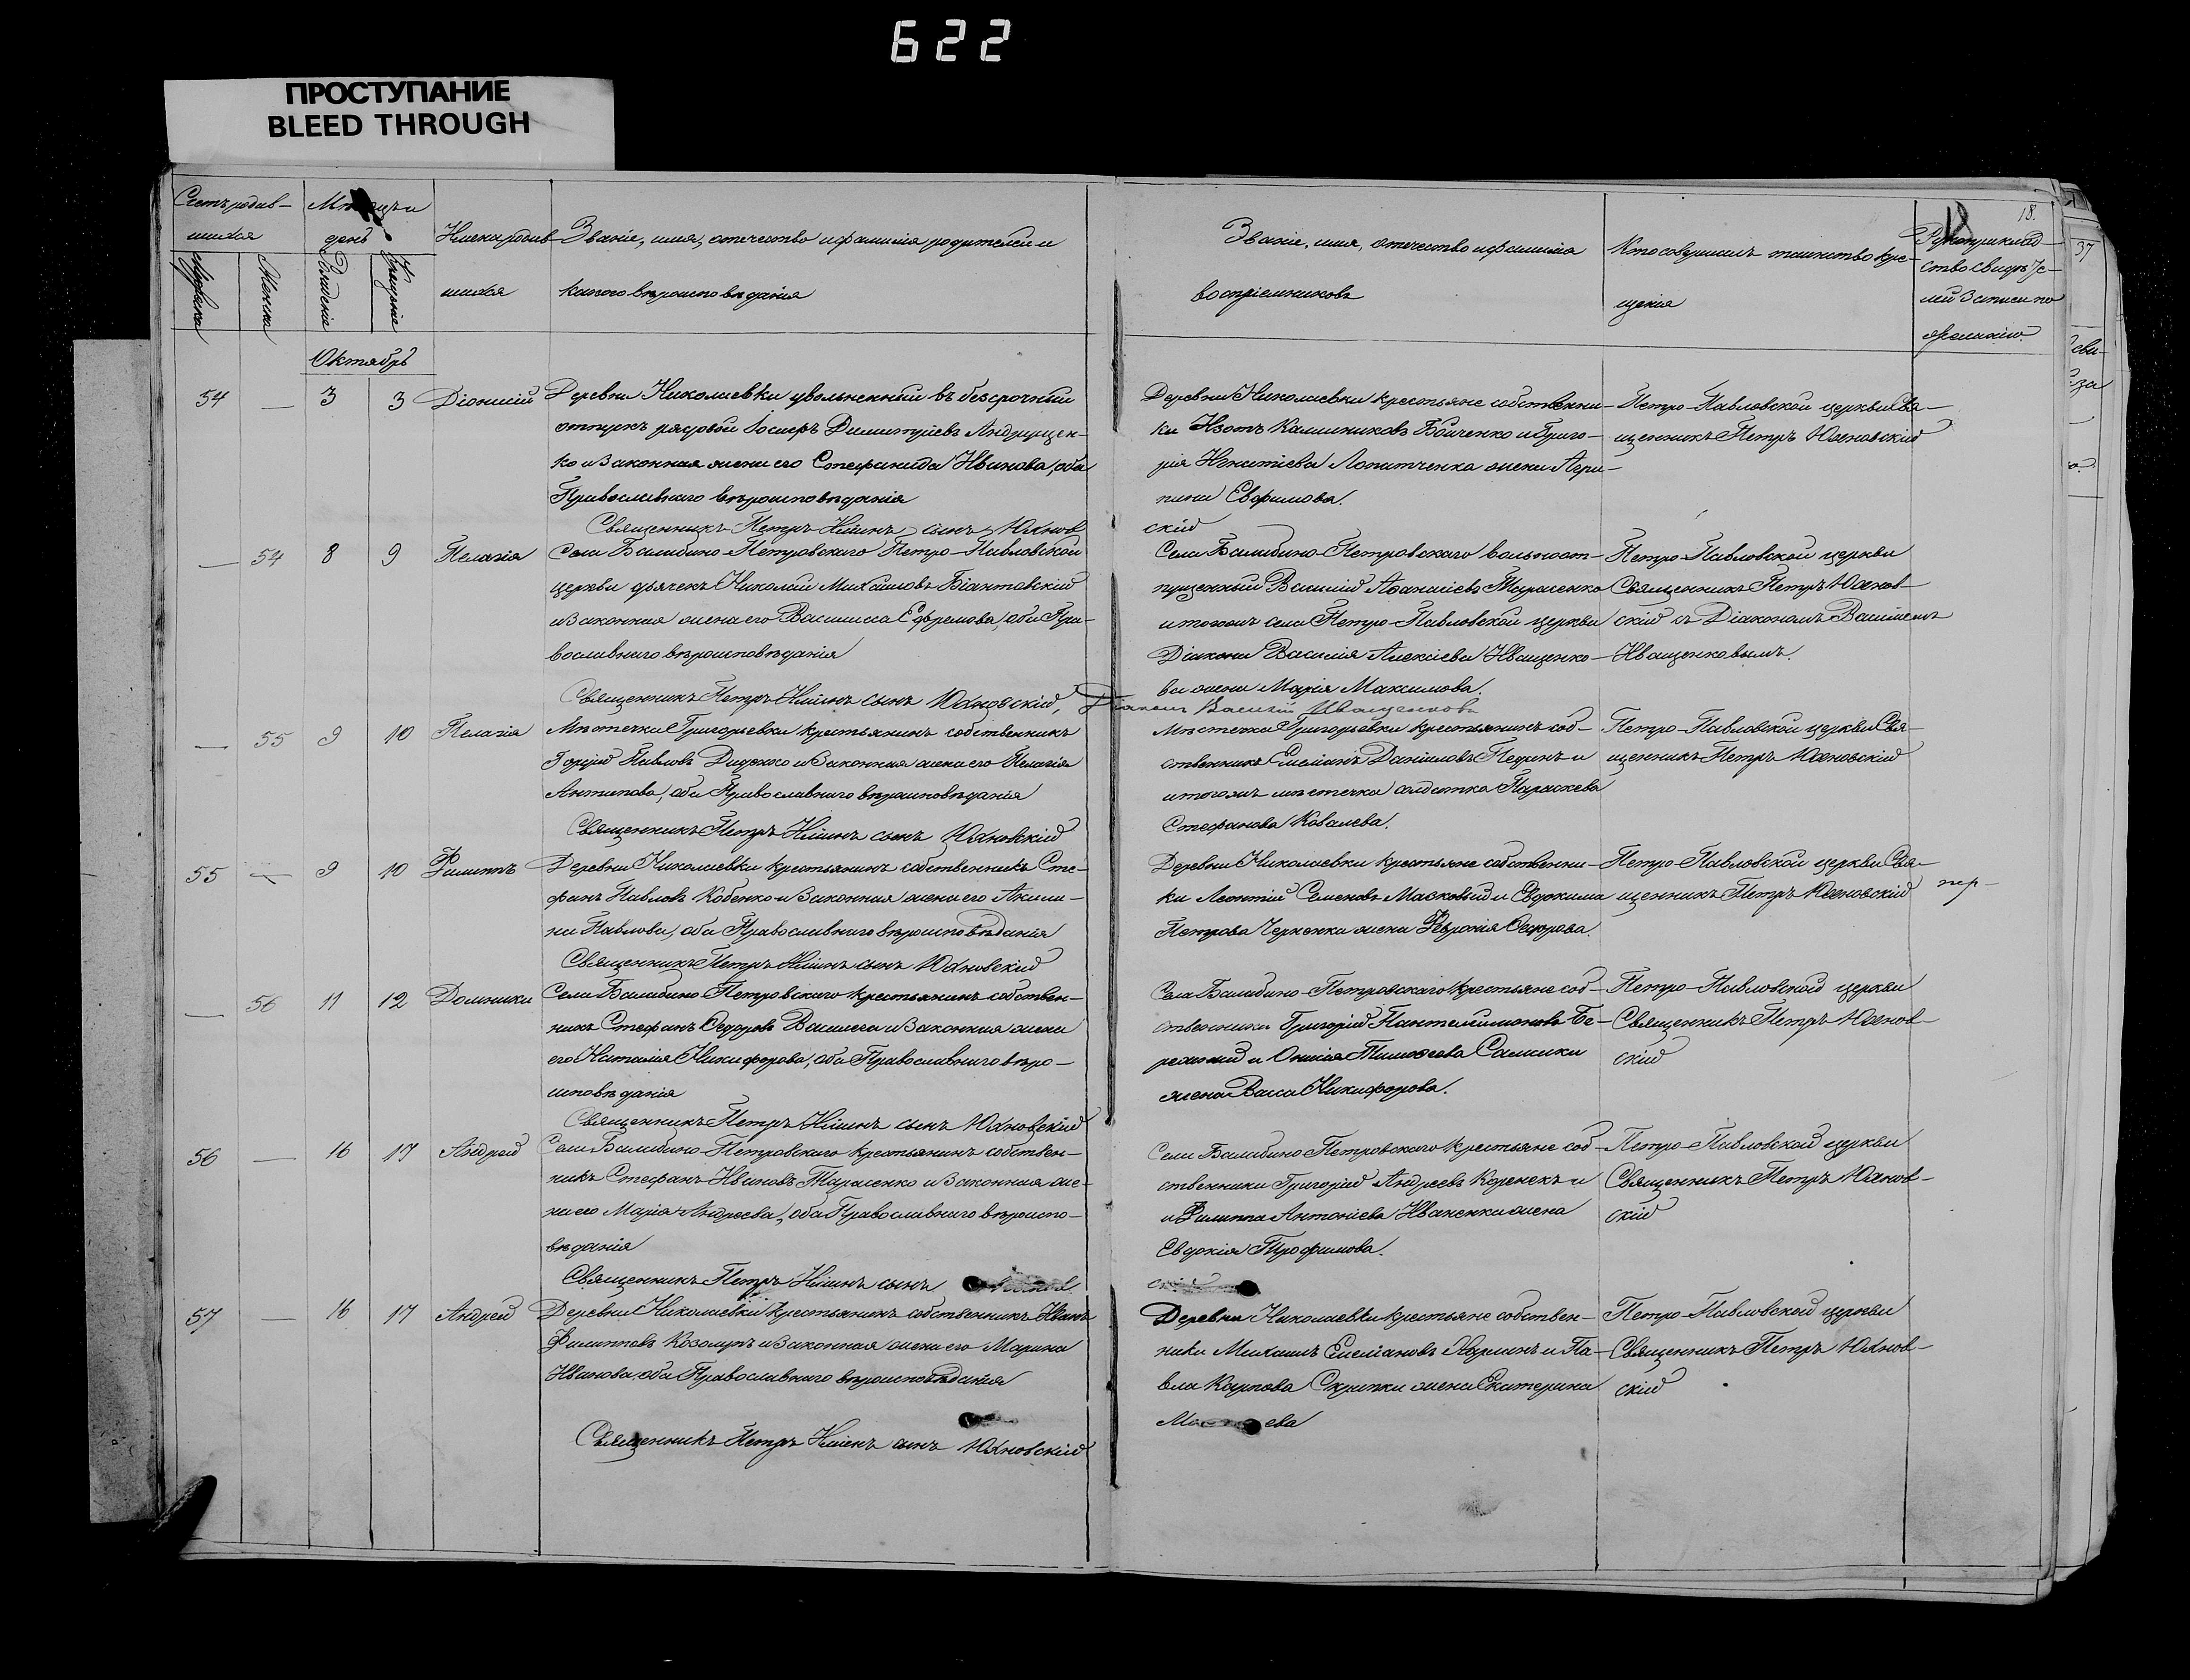 622
ПРОСТУПАНИЕ
BLEED THROUGH
Счетъ родив-
шихся
Мужска
Женска
день
Рожденіе
Крещеніе
Имена родив-
шихся
Званіе, имя, отечество и фамилія родителей и
какого вѣроисповѣданія
Званіе, имя, отечество и фамилія
воспріемниковъ
Кто совершилъ таинство кре-
щенія
18.
Рукоприклад-
ство свидѣте-
лей записи по
желанію.
37
Октябрь
54 — 3 3 Діонисій
Деревни Николаевки уволненный въ безсрочный
отпускъ рядовой Іосифъ Димитріевъ Андрущен-
ко и законная жена его Стефанида Иванова, оба
Православнаго вѣроисповѣданія
Священникъ Петръ Іиінъ сынъ Юхнов
Деревни Николаевки крестьяне собственни-
ки Изотъ Калиниковъ Бойченко и Григо-
рія Игнатіева Лопатченка жена Агри-
пина Евфимова.
скій
Петро-Павловской церкви Свя-
щенникъ Петръ Юхновскій
— 54 8 9 Пелагія
Села Балабино-Петровскаго Петро-Павловской
церкви дьячекъ Николай Михайловъ Біантовскій
и законная жена его Василисса Ефремова, оба Пра-
вославнаго вѣроисповѣданія
Священникъ Петръ сынъ Юхновскій, Діаконъ Василій Иващенковъ
Села Балабино-Петровскаго вольноот-
пущенный Василій Афанасіевъ Тарасенко
и тогожъ села Петро-Павловской церкви
Діакона Василія Алексіева Иващенко-
ва жена Марія Максимова.
Петро-Павловской церкви
Священникъ Петръ Юхнов-
скій съ Діакономъ Василіемъ
Иващенковымъ.
— 55 9 10 Пелагія
Мѣстечка Григорьевки крестьянинъ собственникъ
Гордій Павловъ Диденко и законная жена его Пелагія
Антипова, оба Православнаго вѣроисповѣданія
Священникъ Петръ сынъ Юхновскій
Мѣстечка Григорьевки крестьянинъ соб-
ственникъ Емеліанъ Даніиловъ и
и тогожъ мѣстечка солдатка Параскева
Стефанова Ковалева.
Петро-Павловской церкви Свя-
щенникъ Петръ Юхновскій
55 — 9 10 Филиппъ
Деревни Николаевки крестьянинъ собственникъ Сте-
фанъ Павловъ Кобенко и законная жена его Акили-
на Павлова, оба Православнаго вѣроисповѣданія
Священникъ Петръ сынъ Юхновскій
Деревни Николаевки крестьяне собственни-
ки Леонтій Семеновъ Масковый и Евдокима
Петрова Черненка жена Февронія Ѳедорова.
Петро-Павловской церкви Свя-
щенникъ Петръ Юхновскій
— 56 11 12 Домника
Села Балабино-Петровскаго крестьянинъ собствен-
никъ Стефанъ Ѳедоровъ и законная жена
его Наталія Никифорова, оба Православнаго вѣро-
исповѣданія
Священникъ Петръ сынъ Юхновскій
Села Балабино-Петровскаго крестьяне соб-
ственники Григорій Пантелимоновъ Бе-
режный и Онисія Тимоѳеева Самсики
жена Васса Никифорова.
Петро-Павловской церкви
Священникъ Петръ Юхнов-
скій
56 — 16 17 Андрей
Села Балабино-Петровскаго крестьянинъ собствен-
никъ Стефанъ Ивановъ Тарасенко и законная же-
на его Марія Андреева, оба Православнаго вѣроиспо-
вѣданія
Священникъ Петръ сынъ
Села Балабино-Петровскаго крестьяне соб-
ственники Григорій Андреевъ Коренекъ и
и Филиппа Антоніева Иваненки жена
Евдокія Трофимова.
скій
Петро-Павловской церкви
Священникъ Петръ Юхнов-
скій
57 — 16 17 Андрей
Деревни Николаевки крестьянинъ собственникъ Иванъ
Филипповъ Козолупъ и законная жена его Марина
Иванова, оба Православнаго вѣроисповѣданія
Священникъ Петръ сынъ Юхновскій
Деревни Николаевки крестьяне собствен-
ники Михаилъ Емеліановъ и Па-
вла Карпова Скрипки жена Екатерина
Петро-Павловской церкви
Священникъ Петръ Юхнов-
скій